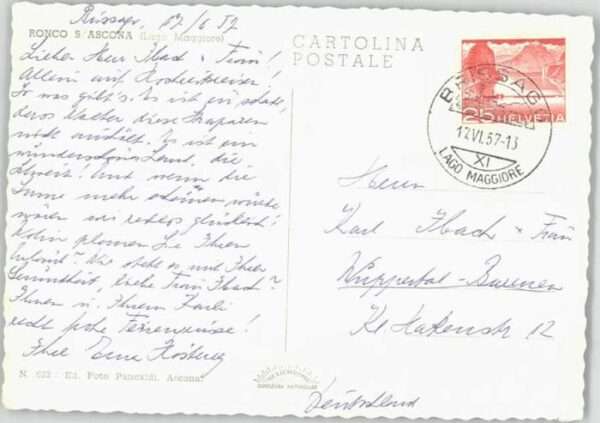 Brissago, 17/6 57
RONCO S/ASCONA (Lago Maggiore)
Lieber Herr Ibach u. Frau!
Allein auf Hochzeitsreise!
So was gibt's. Es ist zu schade,
dass Walter diese Strapazen
nicht aushält. Es ist ein
wunderschönes Land, die
Schweiz! Und wenn die
Sonne mehr scheinen würde
wären wir restlos glücklich!
Wohin planen Sie Ihren
Urlaub? Wie steht es mit Ihrer
Gesundheit, liebe Frau Ibach?
Ihnen u. Ihrem Karli
recht frohe Ferienreise!
Ihre
N. 622 - Ed. Foto Pancaldi, Ascona
CARTOLINA
POSTALE
25 HELVETIA
BRISSAGO
17.VI.57-13
XI
LAGO MAGGIORE
Herrn
Karl Ibach u. Frau
Wuppertal-Barmen
Kl Hakenstr 12
Deutschland